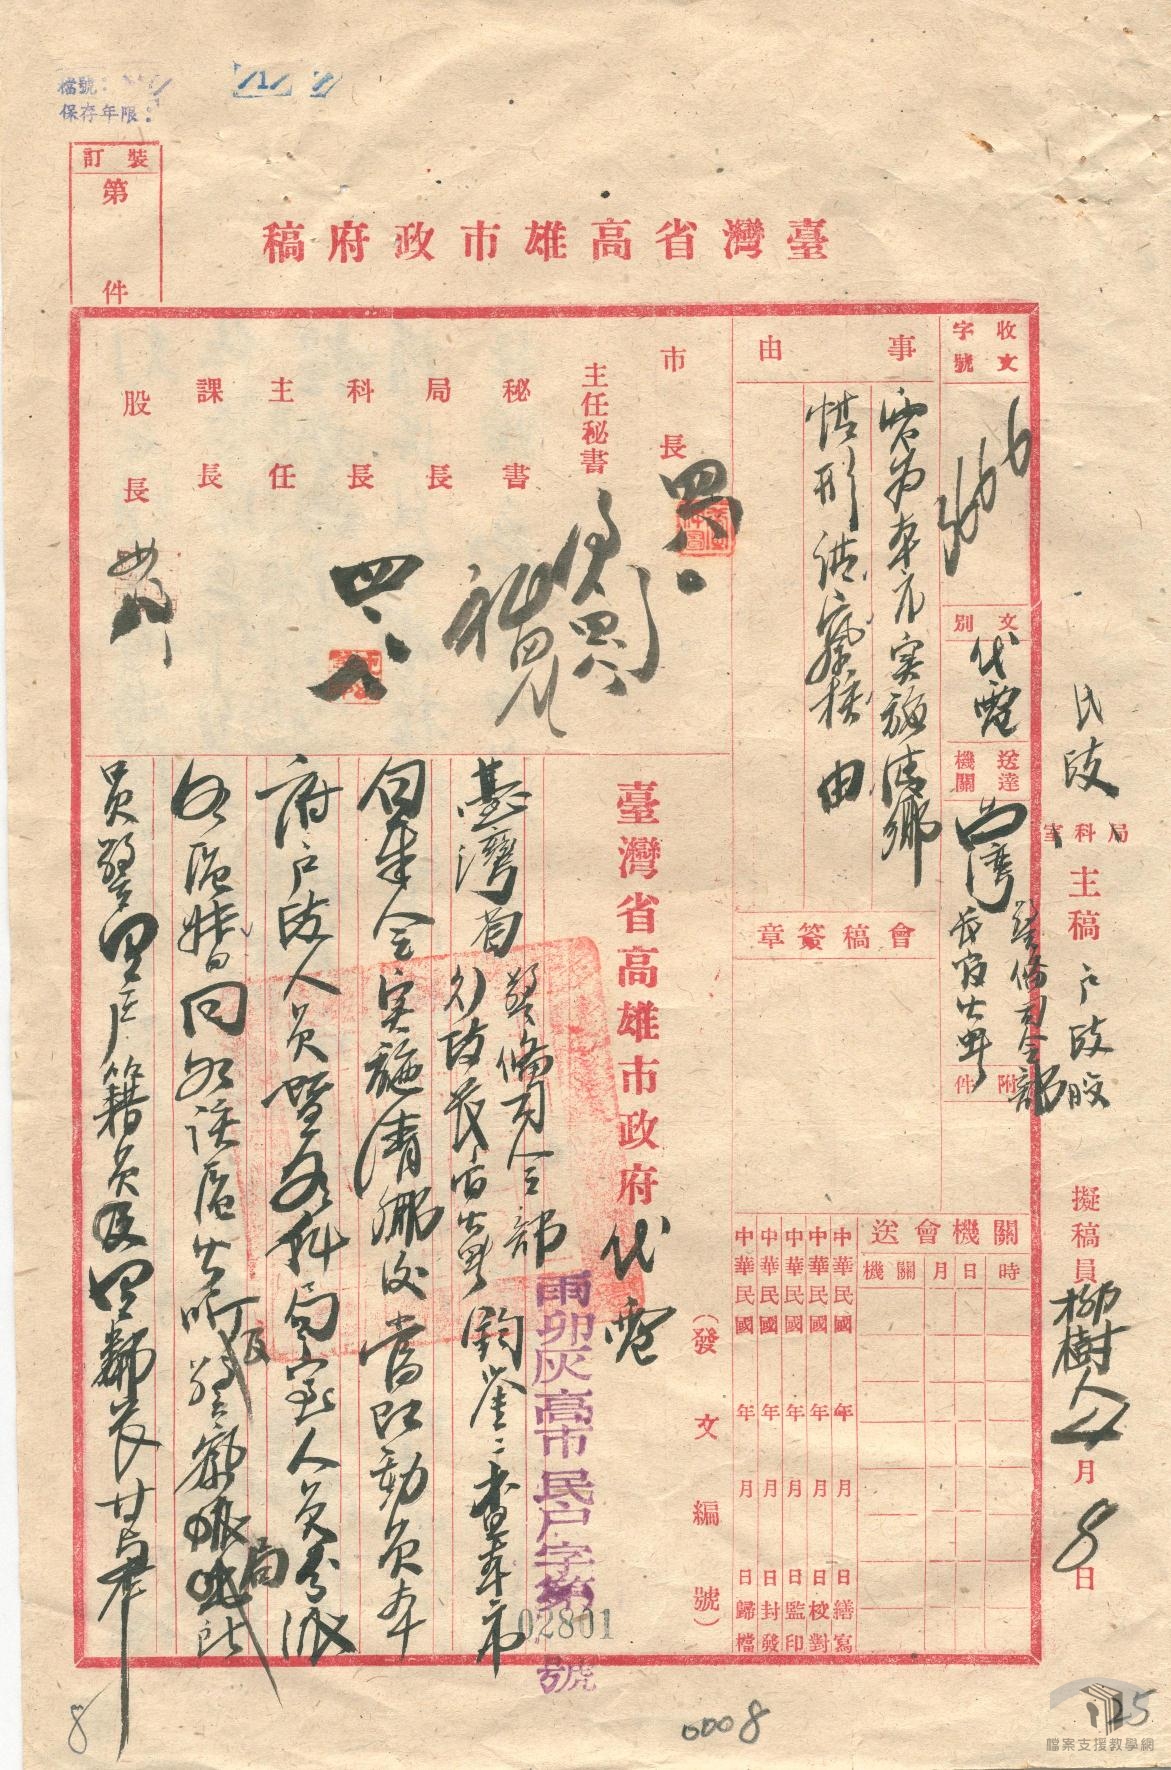 檔號：
保存年限：
裝訂
第
件
臺灣省高雄市政府稿
收文
字號
3666
文別
代電
送達機關
台灣
警備司令部
長官公署
附件
民政
局科室
主稿
戶政股
擬稿員
柳樹人
4月8日
事由
電為本市实施清鄉
情形請察核由
會稿簽章
關機會送
時
日
月
關機
中華民國 年 月 日繕寫
中華民國 年 月 日校對
中華民國 年 月 日監印
中華民國 年 月 日封發
中華民國 年 月 日歸檔
市長
主任秘書
秘書
局長
科長
主任
課長
股長
四八
(發文編號)
臺灣省高雄市政府代電
雨卯灰高市民戶字第
02801
號
警備司令部
臺灣省行政長官公署
鈞鑒：查本市
自奉令实施清鄉後當即動員本
府戶政人員暨各科局室人員分派
各區
會同各該區公所
及警察
局
所
員警里戶籍員及里鄰長廿
8
0008
25
檔案支援教學網